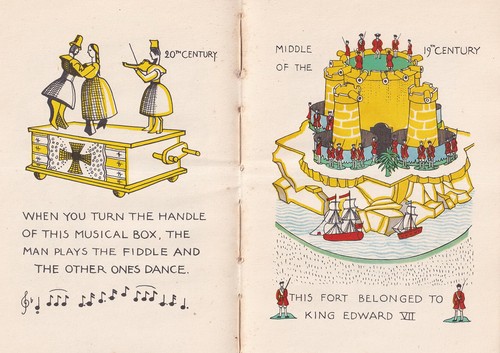 20TH CENTURY
WHEN YOU TURN THE HANDLE
OF THIS MUSICAL BOX, THE
MAN PLAYS THE FIDDLE AND
THE OTHER ONES DANCE.
MIDDLE
OF THE
19TH CENTURY
THIS FORT BELONGED TO
KING EDWARD VII